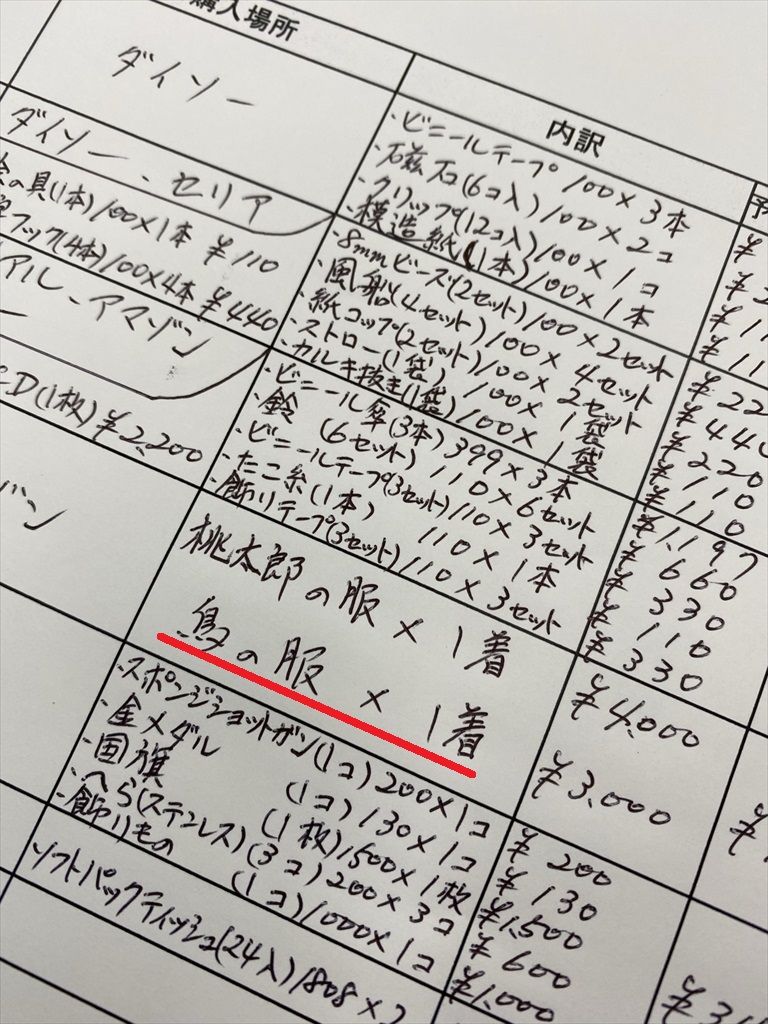 購入場所
内訳
予
ダイソー
・ビニールテープ 100×3本
・磁石(6コ入)100×2コ
・クリップ(12コ入)100×1コ
・模造紙(1本)100×1本
ダイソー、セリア
の具(1本)/100×1本 ¥110
フック(4本)/100×4本 ¥440
・8mmビーズ(2セット)100×2セット
・風船(4セット)100×4セット
・紙コップ(2セット)100×2セット
・ストロー(1袋) 100×1袋
・カルキ抜き(1袋)100×1袋
¥22
¥440
¥220
¥110
¥110
アル、アマゾン
D(1枚)¥2,200
・ビニール傘(3本)399×3本
・鈴 (6セット) 110×6セット
・ビニールテープ(3セット)110×3セット
・たこ糸(1本) 110×1本
・飾りテープ(3セット)110×3セット
¥1,197
¥660
¥330
¥110
¥330
ゾン
桃太郎の服×1着
鳥の服×1着
¥4,000
¥3,000
・スポンジショットガン(1コ)200×1コ
・金メダル (1コ)130×1コ
・国旗 (1枚)1500×1枚
・へら(ステンレス)(3コ)200×3コ
・飾りもの (1コ)1000×1コ
¥200
¥130
¥1,500
¥600
¥1,000
ソフトパックティッシュ(24入)1808×2